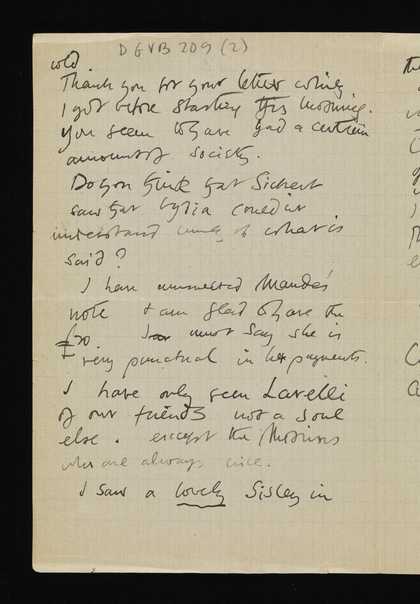 DGVB 209 (2)
cold.
Thank you for your letter which
I got before starting this morning.
You seem to have had a certain
amount of society.
Do you think that Sickert
saw that Lydia couldn't
understand much of what is
said?
I have Maude's
note + am glad to have the
£20. I must say she is
very punctual in her payments.
I have only seen Lavelli
of our friends not a soul
else. except the
who are always nice.
I saw a lovely Sisley in